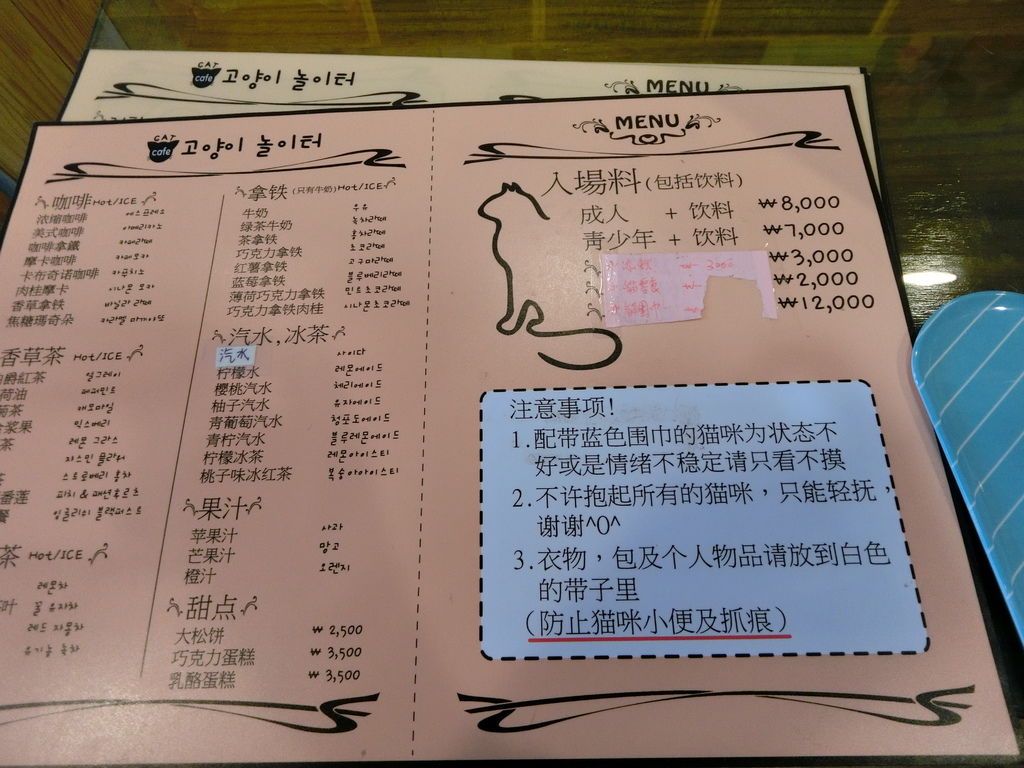 CAT
cafe 고양이 놀이터
MENU
CAT
cafe 고양이 놀이터
咖啡 Hot/ICE
浓缩咖啡 에스프레소
美式咖啡 아메리카노
咖啡拿鐵 카페라떼
摩卡咖啡 카페모카
卡布奇诺咖啡 카푸치노
肉桂摩卡 시나몬 모카
香草拿铁 바닐라 라떼
焦糖瑪奇朵 카라멜 마끼아또
香草茶 Hot/ICE
伯爵紅茶 얼그레이
荷油 페퍼민트
菊茶 캐모마일
浆果 믹스베리
茶 레몬 그라스
쟈스민 플라워
스트로베리 홍차
番莲 피치 & 패션후르츠
잉글리쉬 블랙퍼스트
茶 Hot/ICE
레몬차
叶 꿀 유자차
레드 자몽차
유기농 녹차
拿铁 (只有牛奶) Hot/ICE
牛奶 우유
绿茶牛奶 녹차라떼
茶拿铁 홍차라떼
巧克力拿铁 초코라떼
红薯拿铁 고구마라떼
蓝莓拿铁 블루베리라떼
薄荷巧克力拿铁 민트초코라떼
巧克力拿铁肉桂 시나몬초코라떼
汽水,冰茶
汽水 사이다
柠檬水 레몬에이드
樱桃汽水 체리에이드
柚子汽水 유자에이드
青葡萄汽水 청포도에이드
青柠汽水 블루레몬에이드
柠檬冰茶 레몬아이스티
桃子味冰红茶 복숭아아이스티
果汁
苹果汁 사과
芒果汁 망고
橙汁 오렌지
甜点
大松饼 ₩ 2,500
巧克力蛋糕 ₩ 3,500
乳酪蛋糕 ₩ 3,500
MENU
入場料(包括饮料)
成人 + 饮料 ₩8,000
青少年 + 饮料 ₩7,000
₩3,000
₩2,000
₩12,000
注意事项!
1.配带蓝色围巾的猫咪为状态不
好或是情绪不稳定请只看不摸
2.不许抱起所有的猫咪，只能轻抚，
谢谢^0^
3.衣物，包及个人物品请放到白色
的带子里
(防止猫咪小便及抓痕)